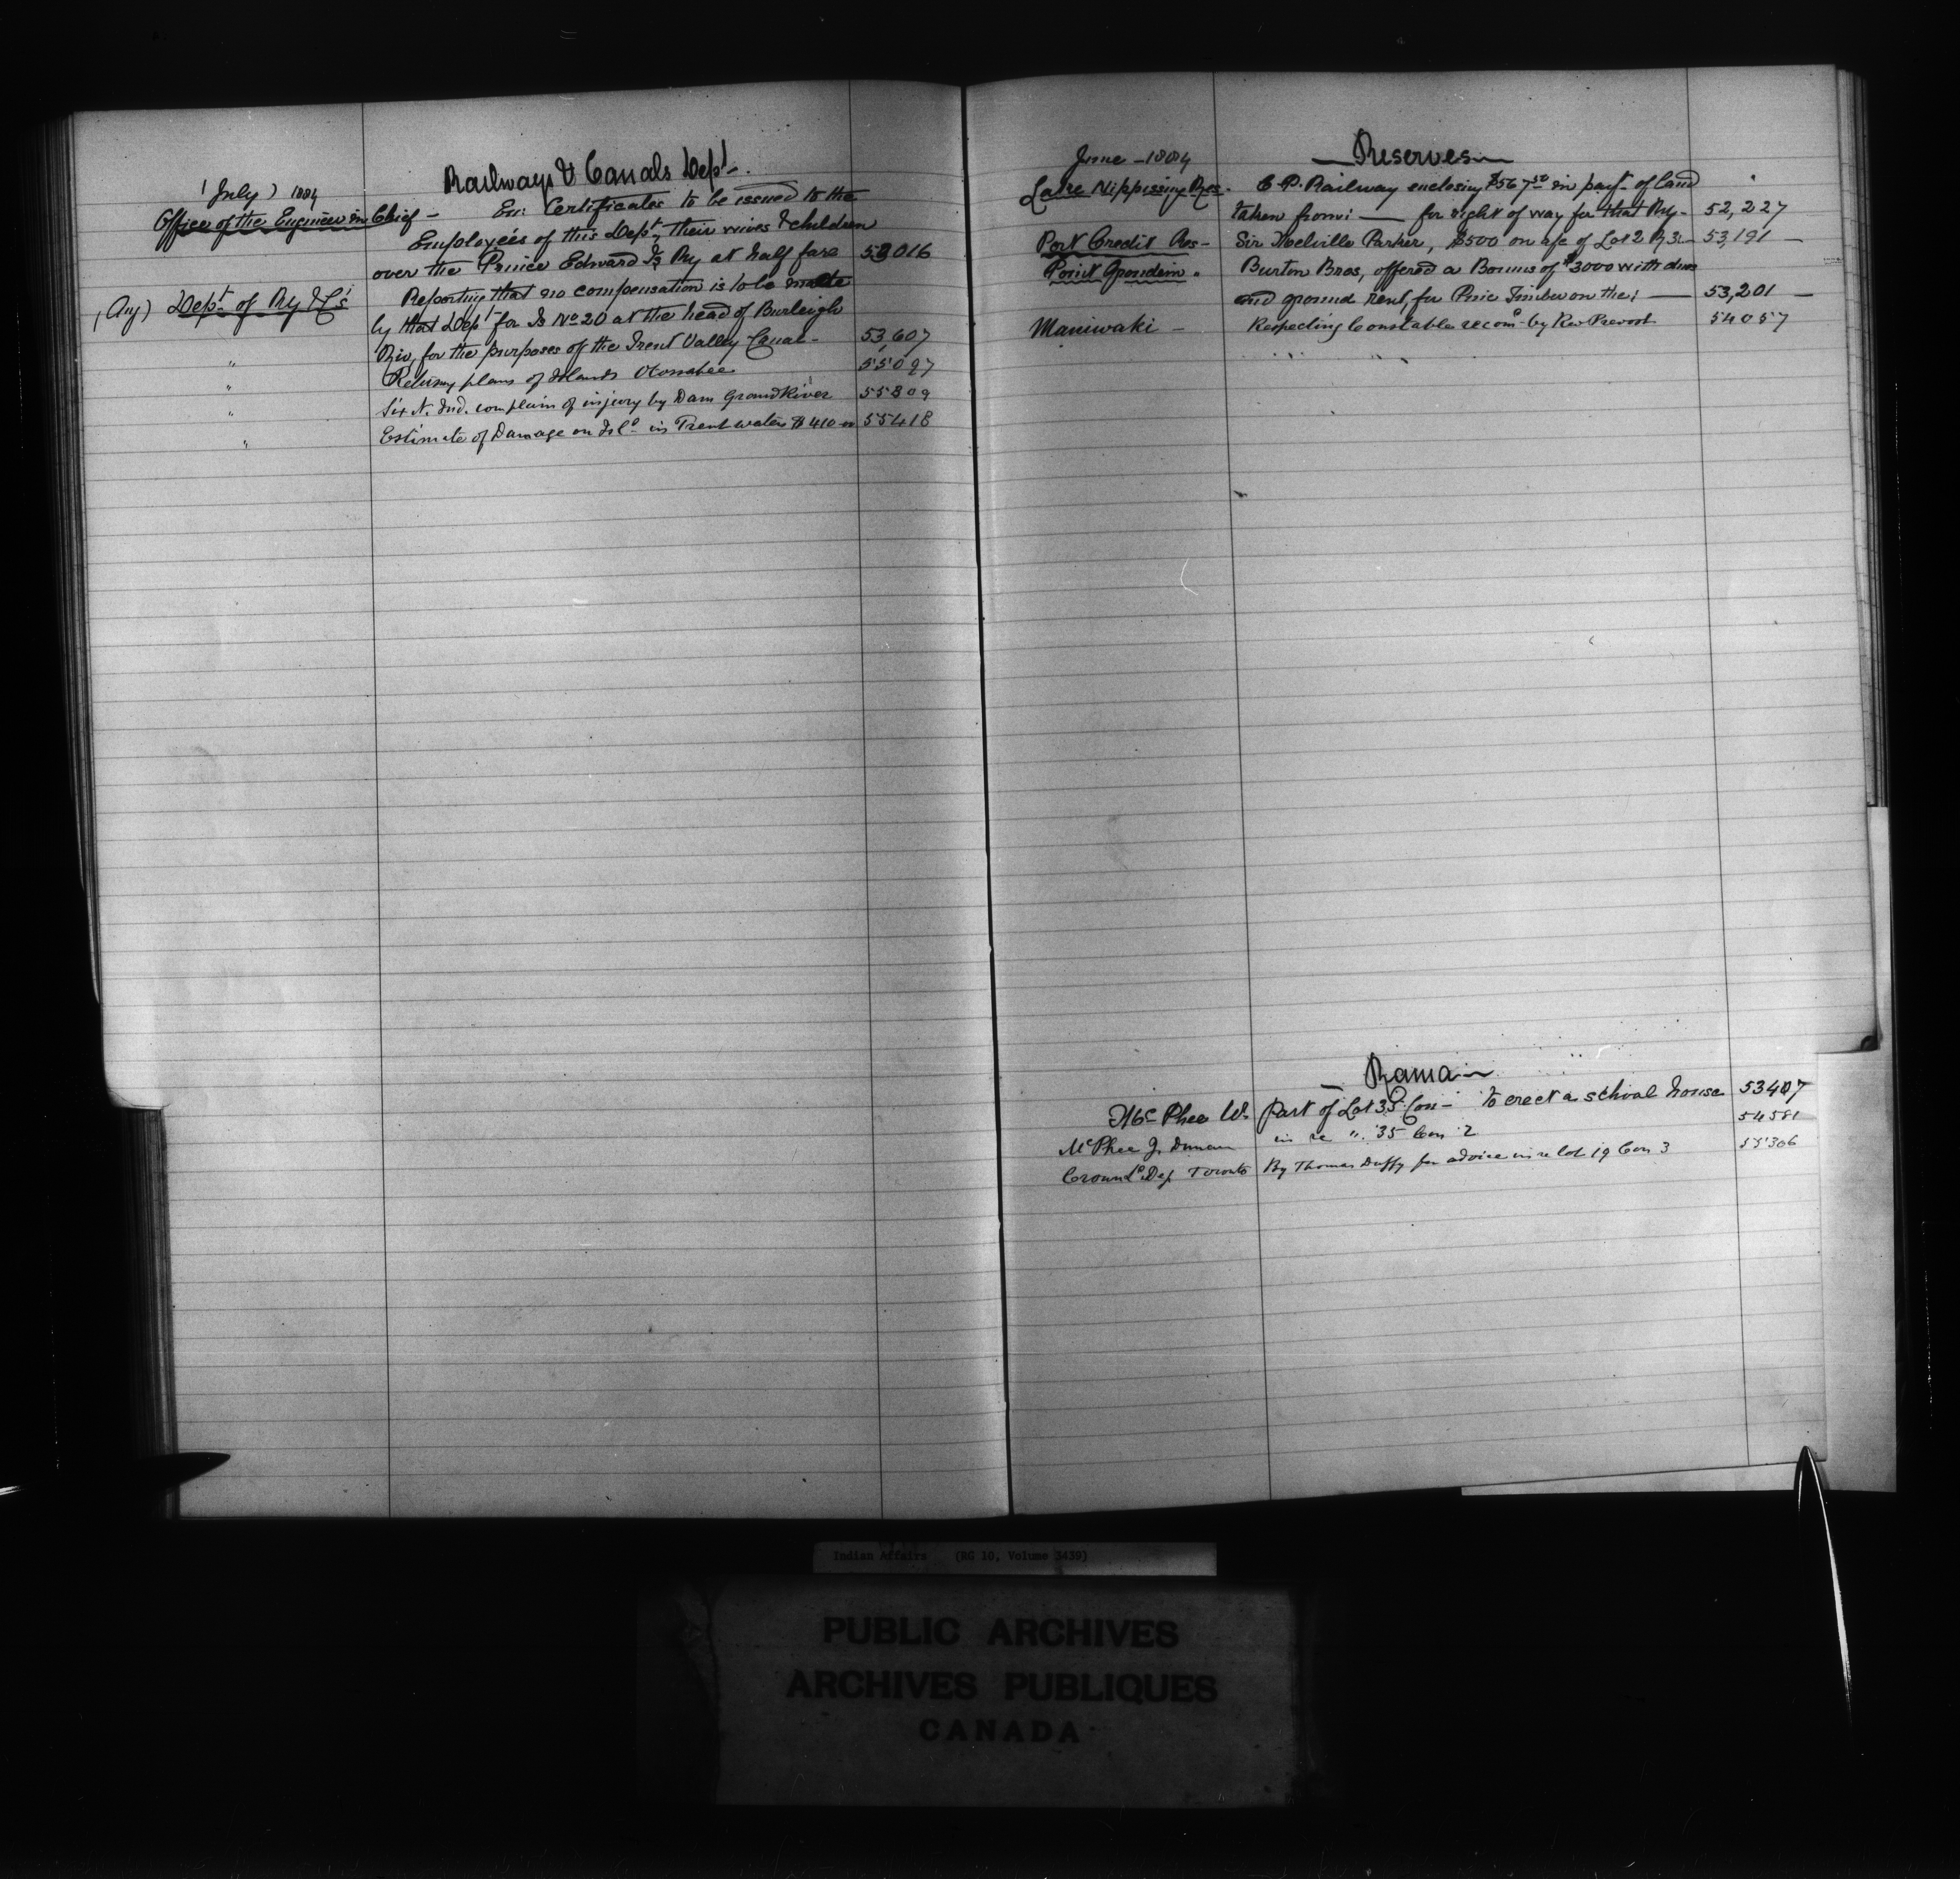 Railways & Canals Dept.
(July) 1884
Office of the Engineer in Chief - En: Certificates to be issued to the
Employées of this Dept, their wives & children
over the Prince Edward Is Ry at half fare 53016
(Aug) Dept. of Ry & Cs Reporting that no compensation is to be made
by that Dept for Is No 20 at the head of Burleigh
Riv, for the purposes of the Trent Valley Canal - 53,607
" Retung plans of Islands Otonabee 55097
" Six N. Ind. complain of injury by Dam Grand River 55309
" Estimate of Damage on Isl. in Trent waters $410 00 55418
June - 1884
Reserves
Lake Nippissing Res. C.P. Railway enclosing $567 50 in payt. of land
taken from: for right of way for that Ry - 52,227
Port Credit Res - Sir Melville Parker, $500 on a/c of Lot 2 R 3 - 53,191 -
Point Grondin " Burton Bros, offered a Bonus of $3000 with dues
and ground rent, for Pine Timber on the; 53,201 -
Maniwaki - Respecting Constable recomd. by Rev Prevost 54057
Rama
McPhee W. Part of Lot 35 Con - to erect a school house 53407
McPhee J. Duncan in re " 35 Con 2 54581
Crown Ld Dep Toronto By Thomas Duffy for advice in re lot 19 Con 3 55306
Indian Affairs (RG 10, Volume 3439)
PUBLIC ARCHIVES
ARCHIVES PUBLIQUES
CANADA